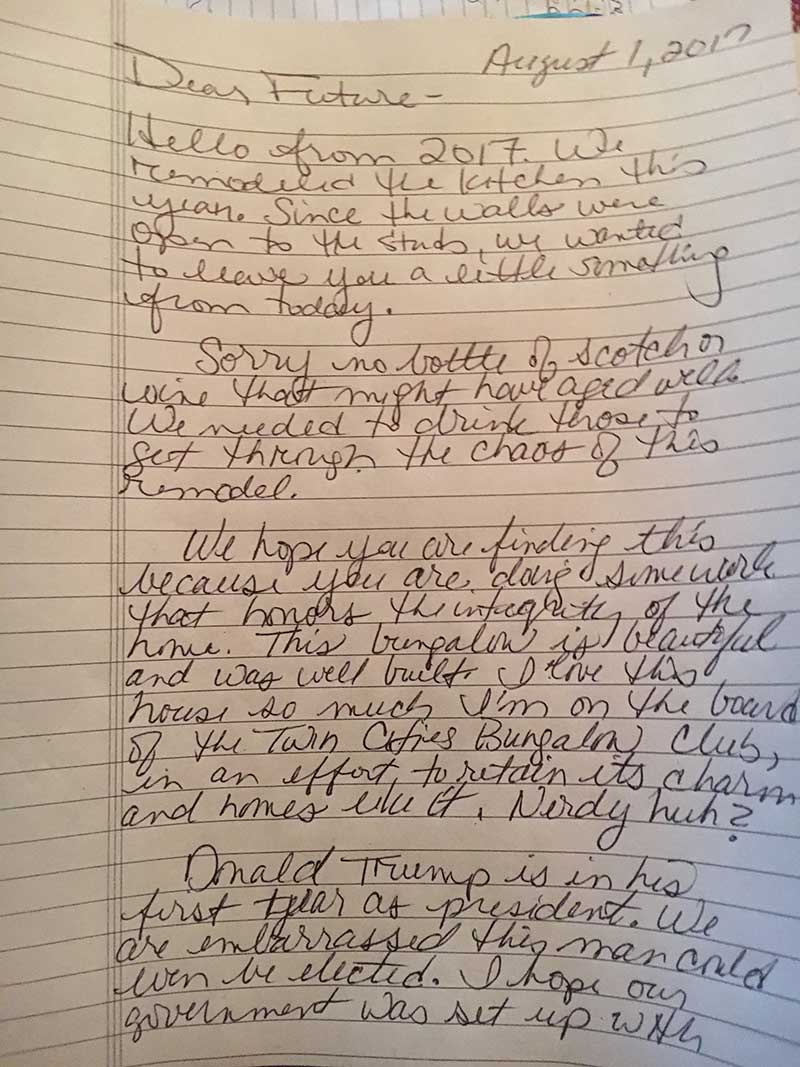 August 1, 2017
Dear Future-
Hello from 2017. We
remodeled the kitchen this
year. Since the walls were
open to the studs, we wanted
to leave you a little something
from today.
Sorry no bottle of scotch or
wine that might have aged well.
We needed to drink those to
get through the chaos of this
remodel.
We hope you are finding this
because you are doing some work
that honors the integrity of the
home. This bungalow is beautiful
and was well built. I love this
house so much I'm on the board
of the Twin Cities Bungalow Club,
in an effort to retain its charm
and homes like it. Nerdy huh?
Donald Trump is in his
first year as president. We
are embarrassed this man could
even be elected. I hope our
government was set up with